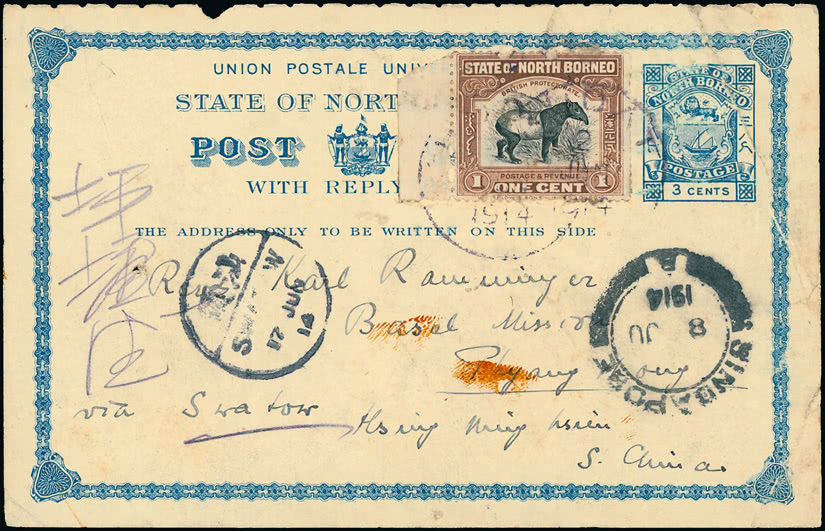 UNION POSTALE
STATE OF NORTH BORNEO
BRITISH PROTECTORATE
POSTAGE & REVENUE
1 ONE CENT 1
STATE OF NORTH BORNEO
POSTAGE
3 CENTS
STATE OF NORT
POST
WITH REPLY
1914 1914
THE ADDRESS ONLY TO BE WRITTEN ON THIS SIDE
Rev Karl Ramminger
Basel Mission
via Swatow Hsing Ning hsien
S. China.
17 JUN 14
SINGAPORE
8 JU
1914